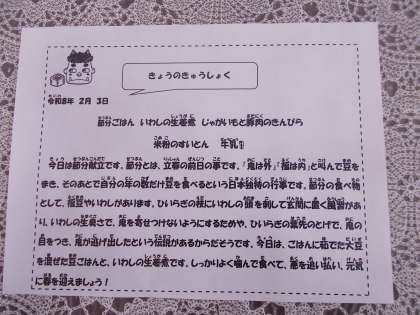 きょうのきゅうしょく
令和8年 2月 3日
節分ごはん いわしの生姜煮 じゃがいもと豚肉のきんぴら
米粉のすいとん 牛乳
今日は節分献立です。節分とは、立春の前日の事です。「鬼は外」「福は内」と叫んで豆を
まき、そのあとで自分の年の数だけ豆を食べるという日本独特の行事です。節分の食べ物
として、福豆やいわしがあります。ひいらぎの枝にいわしの頭を刺して玄関に置く風習があ
り、いわしの生臭さで、鬼を寄せつけないようにするためや、ひいらぎの葉先のとげで、鬼の
目をつき、鬼が逃げ出したという伝説があるからだそうです。今日は、ごはんに茹でた大豆
を混ぜた豆ごはんと、いわしの生姜煮です。しっかりよく噛んで食べて、鬼を追い払い、元気
に春を迎えましょう！